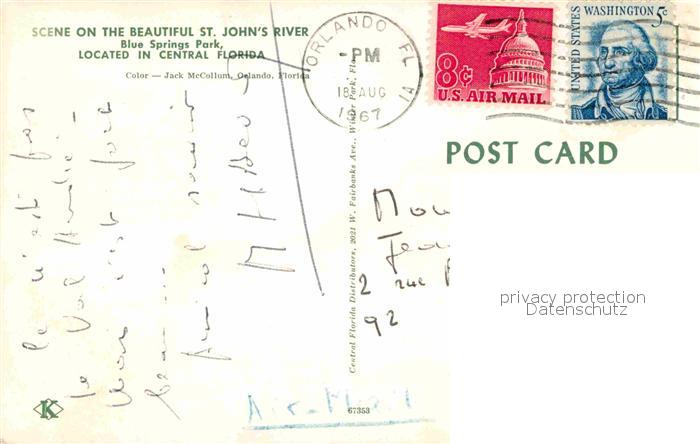 SCENE ON THE BEAUTIFUL ST. JOHN'S RIVER
Blue Springs Park,
LOCATED IN CENTRAL FLORIDA
Color — Jack McCollum, Orlando, Florida
ORLANDO FL
PM
18 AUG
1967
8c
U.S. AIR MAIL
UNITED STATES
WASHINGTON 5c
POST CARD
Ce n'est pas
le Val
mais c'est
amical
Central Florida Distributors, 2021 W. Fairbanks Ave., Winter Park, Fla.
2 rue
92
privacy protection
Datenschutz
Air-Mail
K
67353